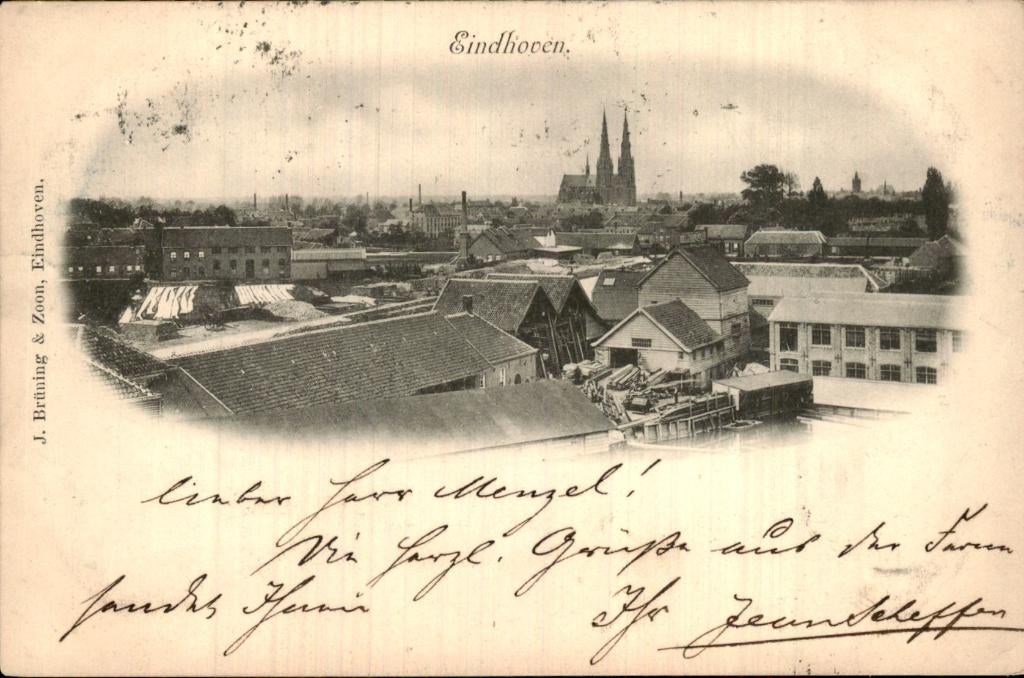 Eindhoven.
J. Brüning & Zoon, Eindhoven.
lieber Herr Menzel!
Die herzl. Grüße aus der Ferne
sendet Ihnen Ihr Jean Scheffen